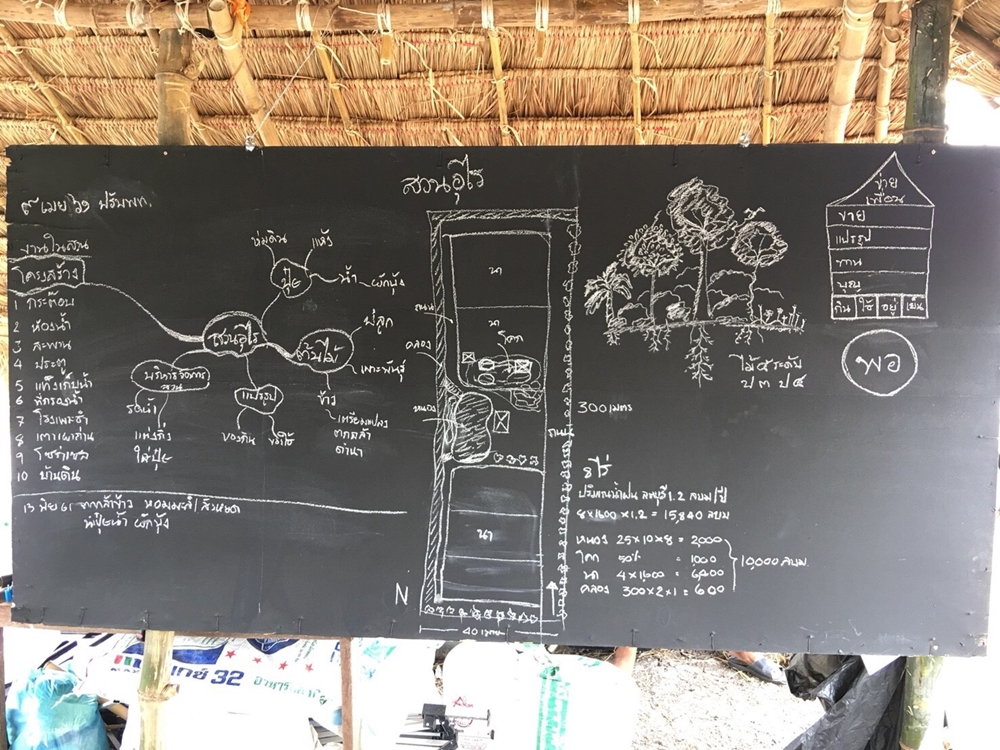 สวนอุไร
๙ เมย ๖๑ ปรับพท.
งานในสวน
โครงสร้าง
1 กระต๊อบ
2 ห้องน้ำ
3 สะพาน
4 ประตู
5 แท้งเก็บน้ำ
6 ที่กรองน้ำ
7 โรงเพาะชำ
8 เตาเผาถ่าน
9 โซล่าเซล
10 บ้านดิน
สวนอุไร
ปุ๋ย
ห่มดิน
แห้ง
น้ำ
ผักบุ้ง
ต้นไม้
ปลูก
เพาะพันธุ์
ข้าว
เตรียมแปลง
ตากกล้า
ดำนา
แปรรูป
ของกิน
ของใช้
บริหารจัดการ
สวน
รดน้ำ
แต่งกิ่ง
ใส่ปุ๋ย
13 มิย 61 ตากกล้าข้าว หอมมะลิ
ผักบุ้ง
นา
นา
โคก
ถนน
คลอง
หนอง
ถนน
นา
N
40 เมตร
300 เมตร
ไม้ ๕ ระดับ
ป ๓ ป ๔
8 ไร่
ปริมาณน้ำฝน ลพบุรี 1.2 ลบม/ปี
8 x 1600 x 1.2 = 15,840 ลบม
หนอง 25 x 10 x 8 = 2,000
โคก 50% = 1000
นา 4 x 1,600 = 6,400
คลอง 300 x 2 x 1 = 600
10,000 ลบม
ขาย
เพื่อน
ขาย
แปรรูป
ทาน
บุญ
กิน ใช้ อยู่ เย็น
พอ
32